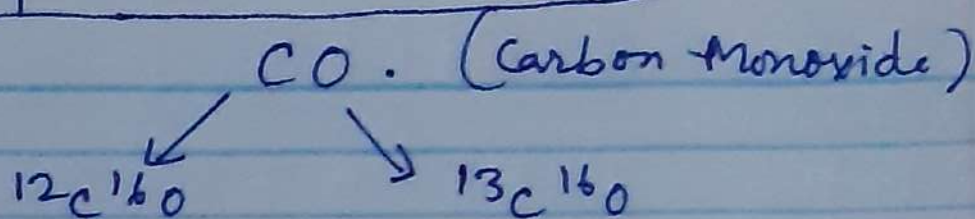 CO. (Carbon Monoxide)
¹²C¹⁶O ¹³C¹⁶O